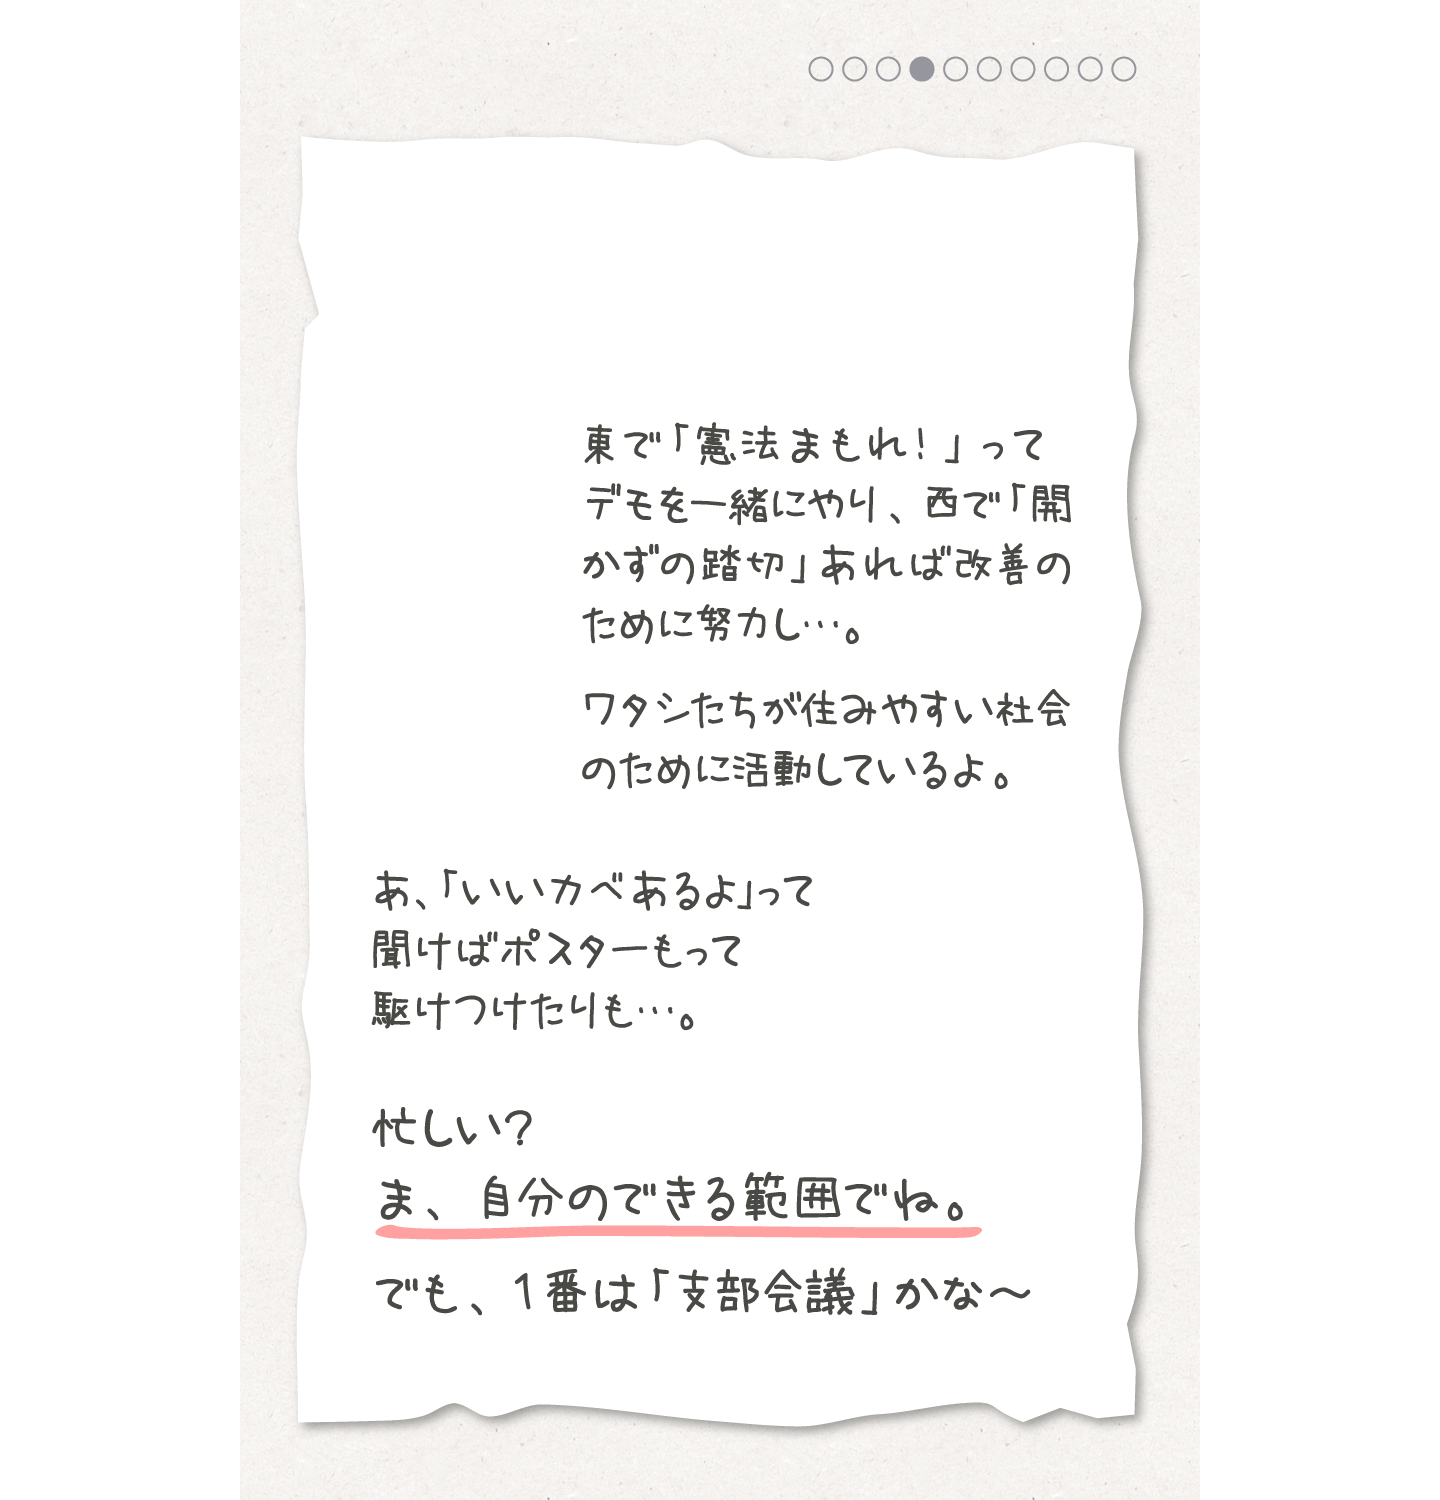 東で「憲法まもれ！」って
デモを一緒にやり、西で「開
かずの踏切」あれば改善の
ために努力し…。
ワタシたちが住みやすい社会
のために活動しているよ。
あ、「いいカベあるよ」って
聞けばポスターもって
駆けつけたりも…。
忙しい？
ま、自分のできる範囲でね。
でも、1番は「支部会議」かな〜